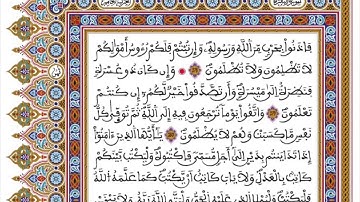 فَاذَنُواْ بِحَرْبٍ مِّنَ اَللَّهِ وَرَسُولِهِۦ وَإِن تُبْتُمْ فَلَكُمْ رُءُوسُ أَمْوَٰلِكُمْ
لَا تَظْلِمُونَ وَلَا تُظْلَمُونَ وَإِن كَانَ ذُو عُسْرَةٍ
فَنَظِرَةٌ إِلَىٰ مَيْسُرَةٍ وَأَن تَصَّدَّقُواْ خَيْرٌ لَّكُمُۥ إِن كُنتُمْ
تَعْلَمُونَ وَاتَّقُواْ يَوْمًا تُرْجَعُونَ فِيهِ إِلَى اَللَّهِ ثُمَّ تُوَفَّىٰ كُلُّ
نَفْسٍ مَّا كَسَبَتْ وَهُمْ لَا يُظْلَمُونَ يَٰأَيُّهَا اَلَّذِينَ ءَامَنُواْ
إِذَا تَدَايَنتُم بِدَيْنٍ إِلَىٰ أَجَلٍ مُّسَمًّى فَاكْتُبُوهُ وَلْيَكْتُب بَّيْنَكُمْ
كَاتِبٌ بِالْعَدْلِ وَلَا يَابَ كَاتِبٌ أَن يَكْتُبَ كَمَا عَلَّمَهُ اُللَّهُ
فَلْيَكْتُبْ وَلْيُمْلِلِ اِلَّذِي عَلَيْهِ اِلْحَقُّ وَلْيَتَّقِ اِللَّهَ رَبَّهُۥ وَلَا